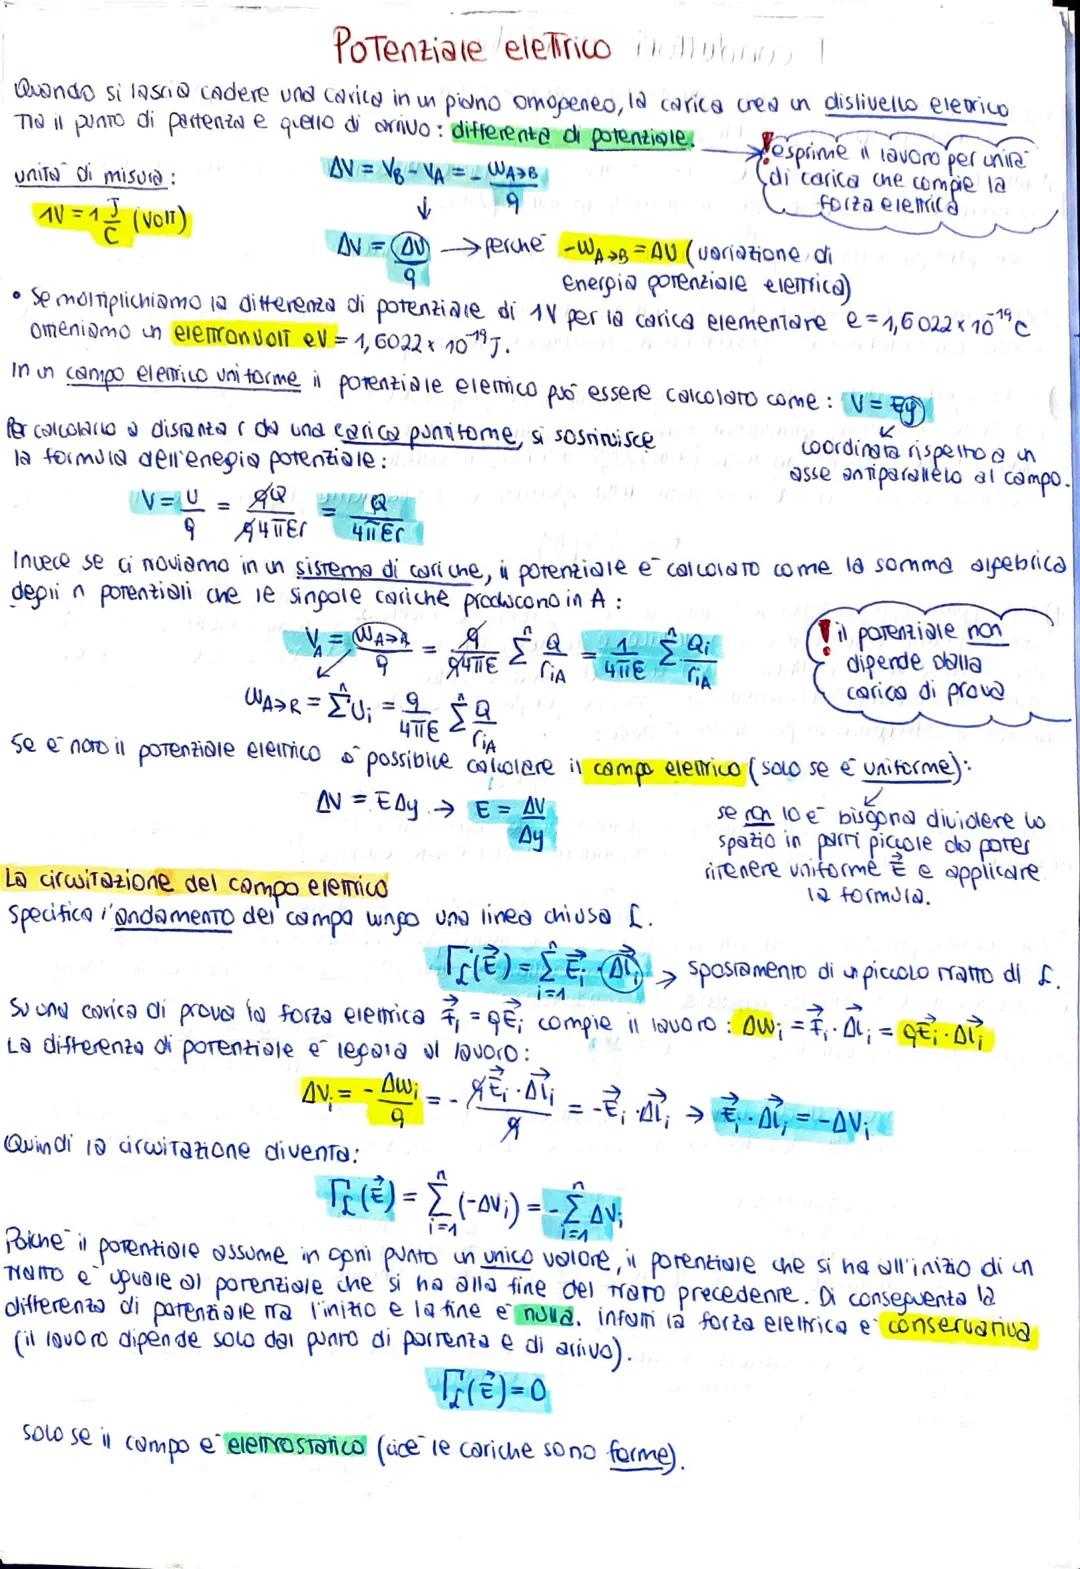 Potenziale elettrico
Quando si lascia cadere una carica in un piano omogeneo, la carica crea un dislivello elettrico
tra il punto di partenza e quello di arrivo: differenza di potenziale.
! esprime il lavoro per unità
di carica che compie la
forza elettrica
unità di misura:
1V = 1 J/C (volt)
ΔV = V_B - V_A = - W_A→B / q
↓
ΔV = ΔU / q → perché -W_A→B = ΔU (variazione di
energia potenziale elettrica)
• Se moltiplichiamo la differenza di potenziale di 1V per la carica elementare e = 1,6022 x 10⁻¹⁹ C
otteniamo un elettronvolt eV = 1,6022 x 10⁻¹⁹ J.
In un campo elettrico uniforme il potenziale elettrico può essere calcolato come: V = Ey
coordinata rispetto a un
asse antiparallelo al campo.
Per calcolarlo a distanza r da una carica puntiforme, si sostituisce
la formula dell'enegia potenziale:
V = U/q = qQ / q4πεr = Q / 4πεr
Invece se ci troviamo in un sistema di cariche, il potenziale è calcolato come la somma algebrica
degli n potenziali che le singole cariche producono in A:
V_A = W_A→R / q = q / q4πε Σⁿ Q / r_iA = 1 / 4πε Σⁿ Qi / r_iA
! il potenziale non
dipende dalla
carica di prova
W_A→R = Σⁿ U_i = q / 4πε Σⁿ Q / r_iA
Se è noto il potenziale elettrico è possibile calcolare il campo elettrico (solo se è uniforme):
ΔV = EΔy → E = ΔV / Δy
se non lo è bisogna dividere lo
spazio in parti piccole da poter
ritenere uniforme E⃗ e applicare
la formula.
La circuitazione del campo elettrico
Specifica l'andamento del campo lungo una linea chiusa L.
Γ_L(E⃗) = Σⁿ_i=1 E⃗_i · Δl⃗_i → spostamento di un piccolo tratto di L.
Su una carica di prova la forza elettrica F⃗_i = qE⃗_i compie il lavoro: ΔW_i = F⃗_i · Δl⃗_i = qE⃗_i · Δl⃗_i
La differenza di potenziale è legata al lavoro:
ΔV_i = - ΔW_i / q = - qE⃗_i · Δl⃗_i / q = -E⃗_i · Δl⃗_i → E⃗_i · Δl⃗_i = -ΔV_i
Quindi la circuitazione diventa:
Γ_L(E⃗) = Σⁿ_i=1 (-ΔV_i) = - Σⁿ_i=1 ΔV_i
Poiché il potenziale assume in ogni punto un unico valore, il potenziale che si ha all'inizio di un
tratto è uguale al potenziale che si ha alla fine del tratto precedente. Di conseguenza la
differenza di potenziale tra l'inizio e la fine è nulla. infatti la forza elettrica è conservativa
(il lavoro dipende solo dal punto di partenza e di arrivo).
Γ_L(E⃗) = 0
solo se il campo è elettrostatico (cioè le cariche sono ferme).